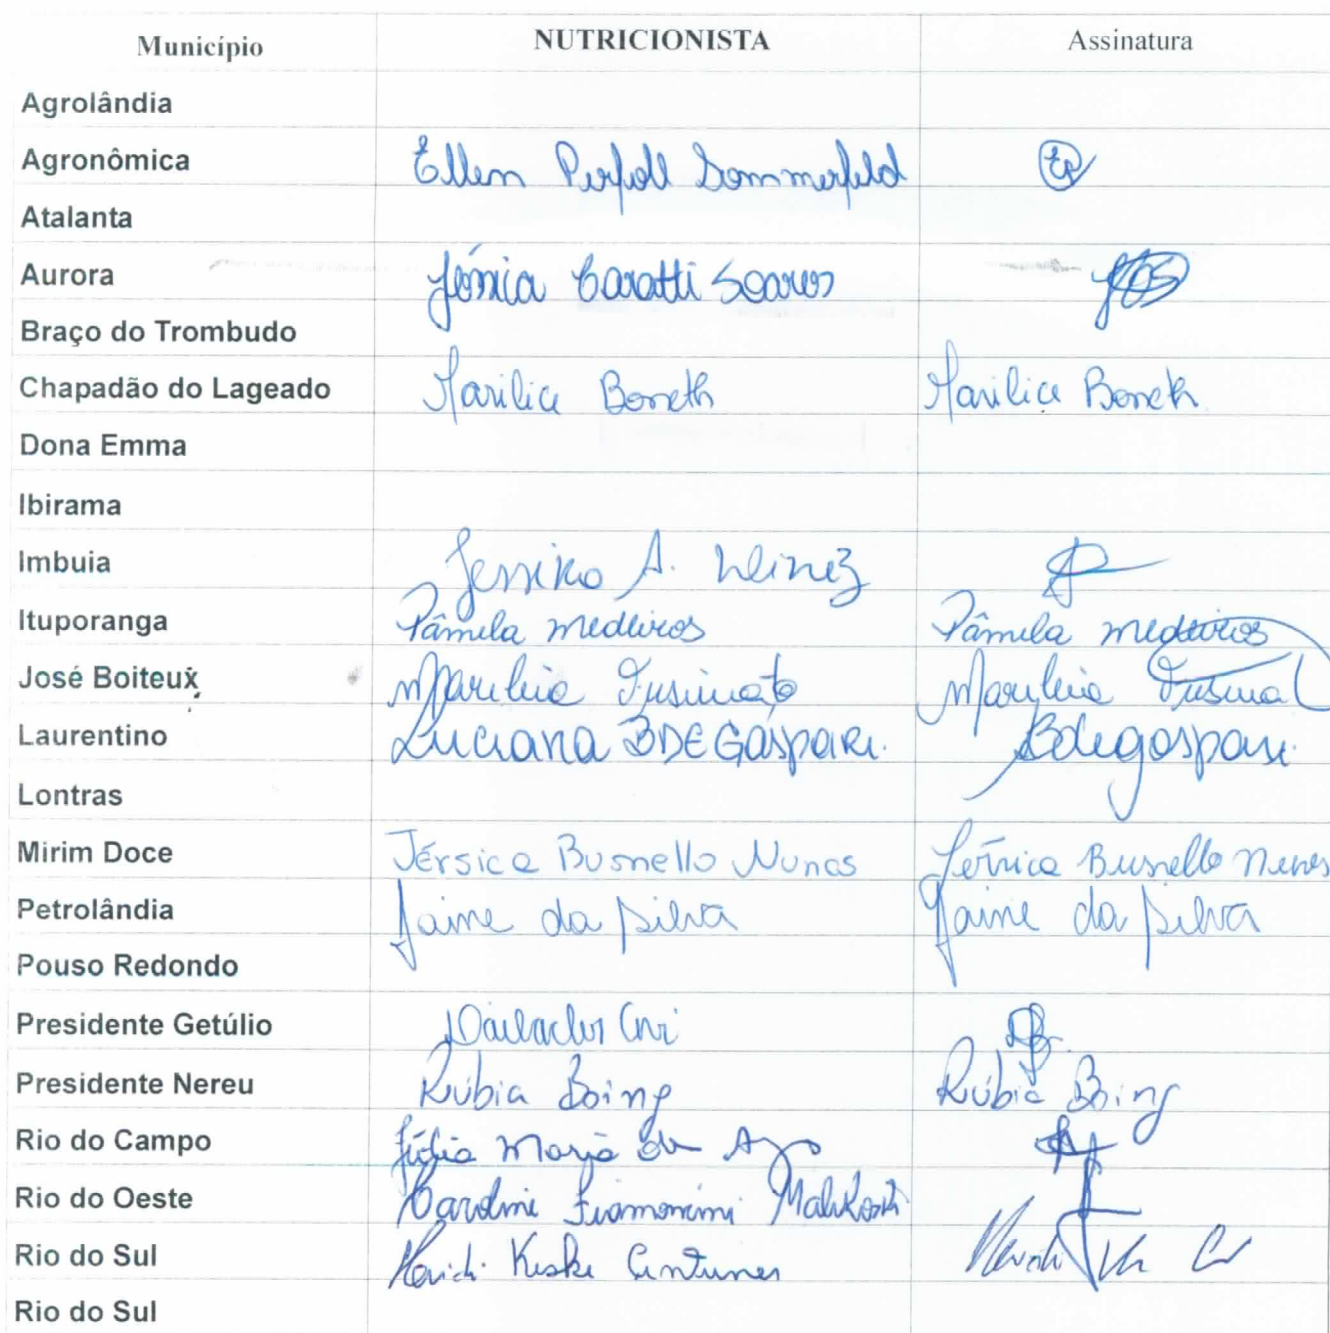 Município NUTRICIONISTA Assinatura
Agrolândia
Agronômica Ellen Sommerfeld
Atalanta
Aurora Caratti Soares
Braço do Trombudo
Chapadão do Lageado Marilice Boneth Marilice Boneth
Dona Emma
Ibirama
Imbuia A.
Ituporanga Pâmela medeiros Pâmela medeiros
José Boiteux
Laurentino Luciana BDEGASPARI. Bdegaspari
Lontras
Mirim Doce Jéssica Busnello Nunes Jéssica Busnello Nunes
Petrolândia Jaine da Silva Jaine da Silva
Pouso Redondo
Presidente Getúlio
Presidente Nereu Rúbia Boing Rúbia Boing
Rio do Campo Maria de
Rio do Oeste Caroline
Rio do Sul
Rio do Sul